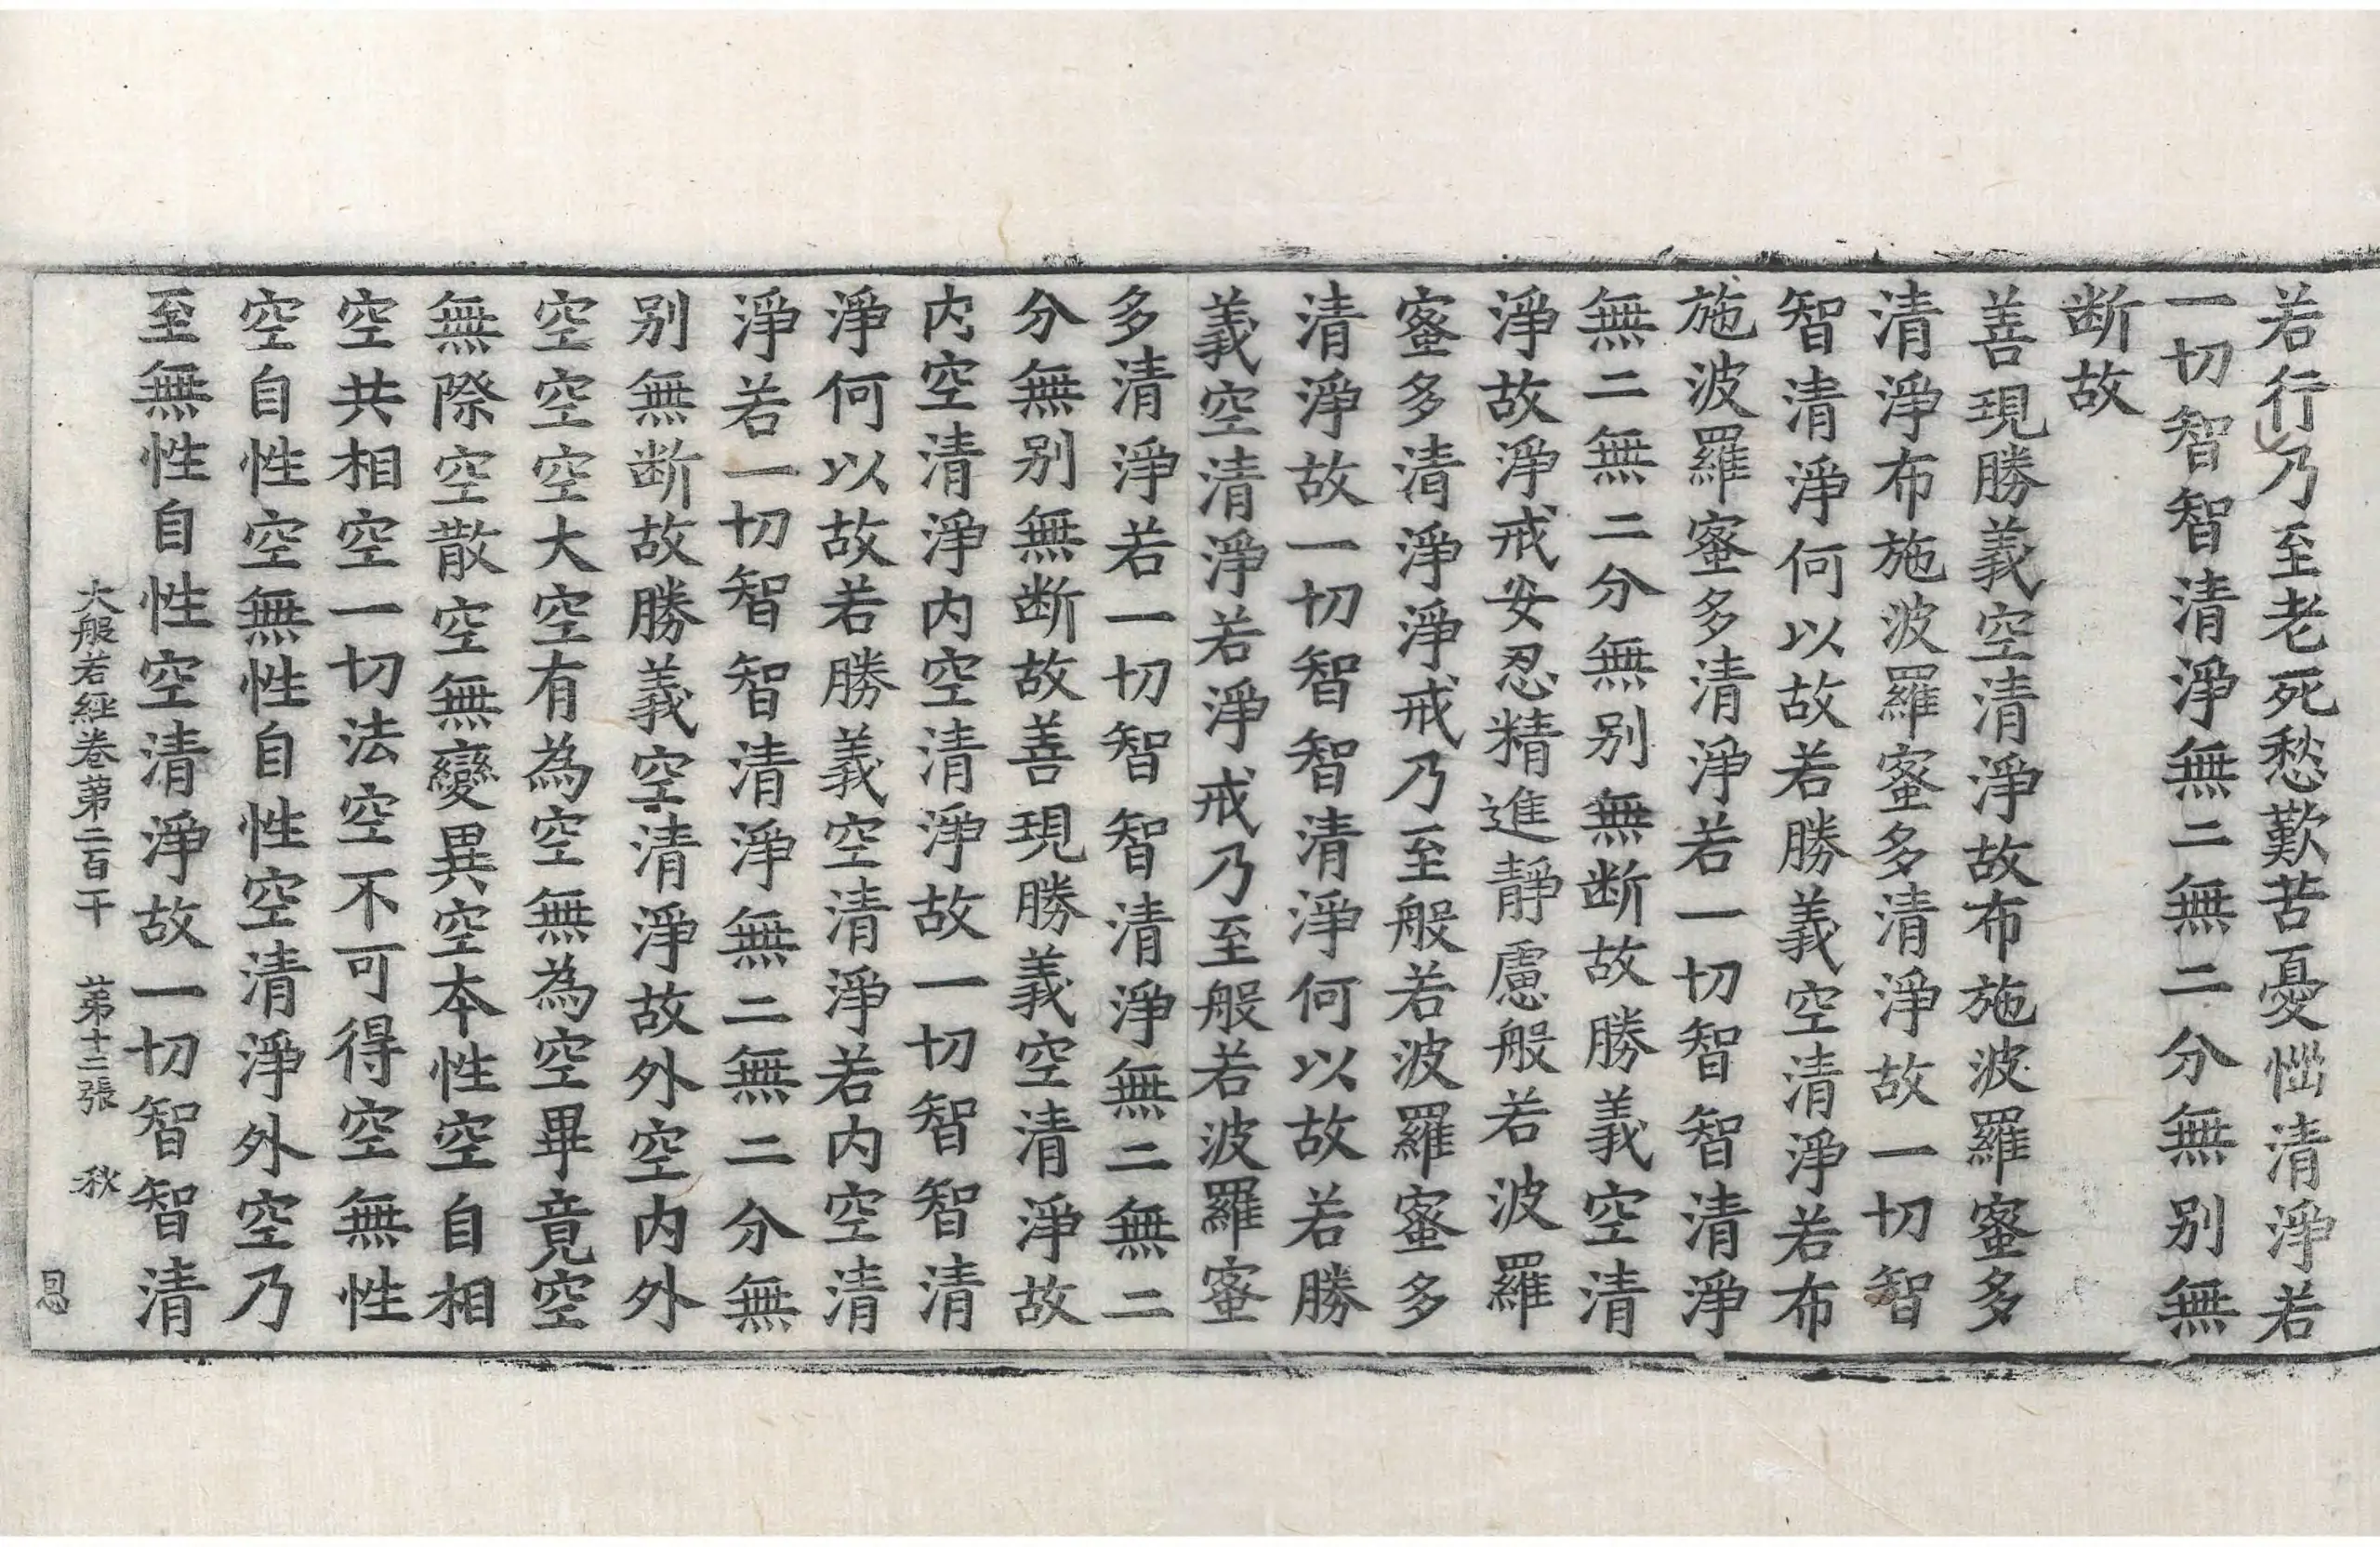 若行乃至老死愁歎苦憂惱清淨若
一切智智清淨無二無二分無別無
断故
善現勝義空清淨故布施波羅蜜多
清淨布施波羅蜜多清淨故一切智
智清淨何以故若勝義空清淨若布
施波羅蜜多清淨若一切智智清淨
無二無二分無別無断故勝義空清
淨故淨戒安忍精進靜慮般若波羅
蜜多清淨淨戒乃至般若波羅蜜多
清淨故一切智智清淨何以故若勝
義空清淨若淨戒乃至般若波羅蜜
多清淨若一切智智清淨無二無二
分無別無断故善現勝義空清淨故
内空清淨内空清淨故一切智智清
淨何以故若勝義空清淨若内空清
淨若一切智智清淨無二無二分無
別無断故勝義空清淨故外空内外
空空空大空有為空無為空畢竟空
無際空散空無變異空本性空自相
空共相空一切法空不可得空無性
空自性空無性自性空清淨外空乃
至無性自性空清淨故一切智智清
大般若經卷第二百干 第十二張 秋